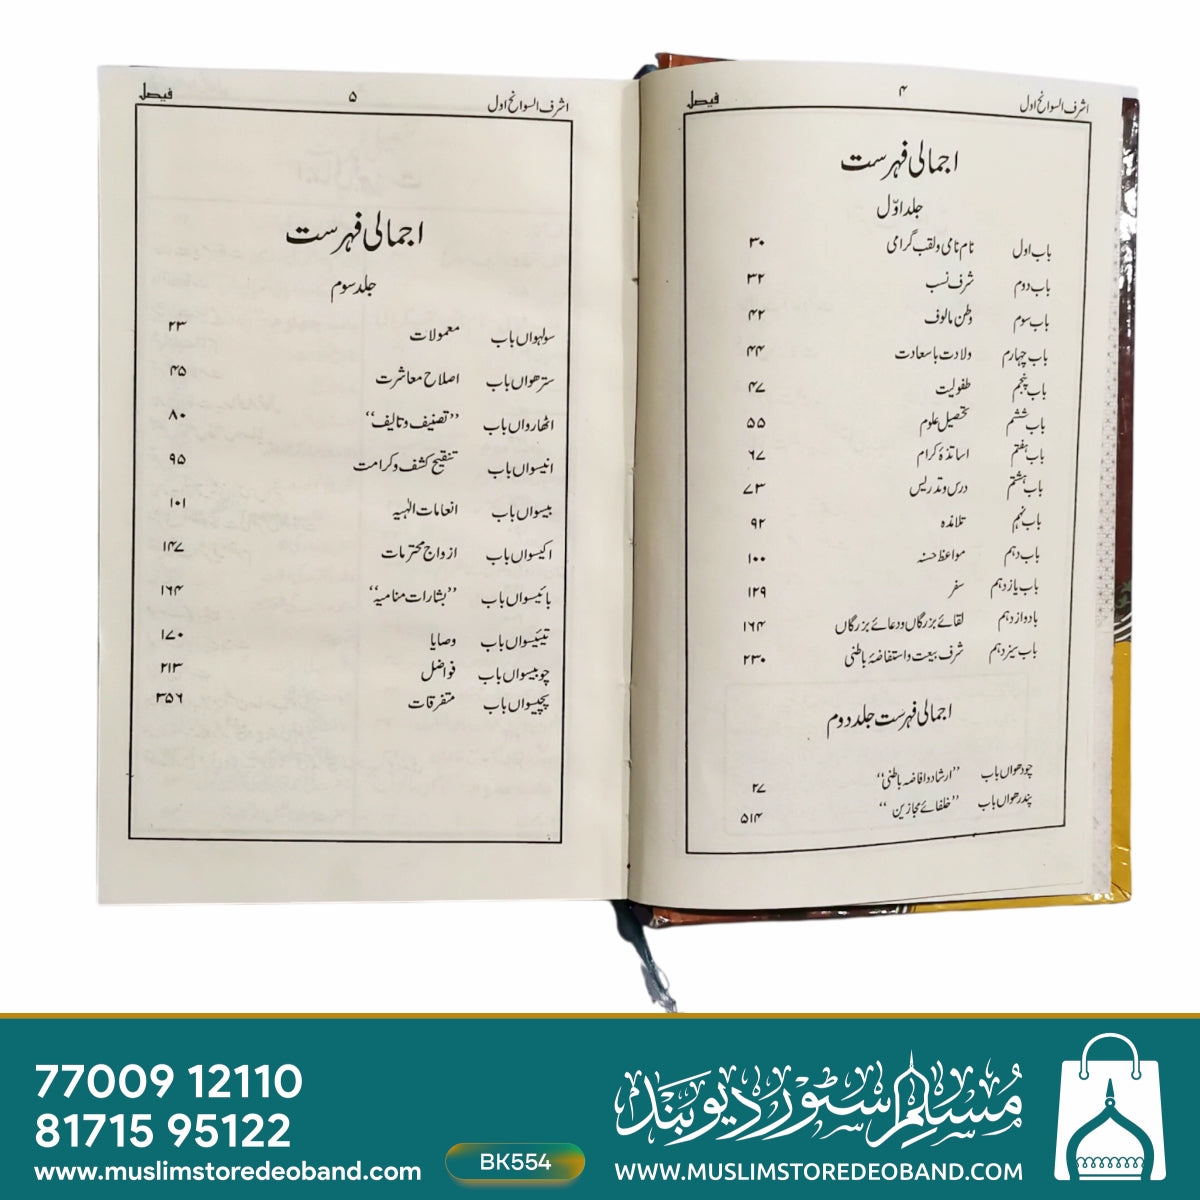 اشرف السوانح اول ۴ فیصل
اجمالی فہرست
جلد اوّل
باب اول نام نامی و لقب گرامی ۳۰
باب دوم شرف نسب ۳۲
باب سوم وطن مالوف ۴۲
باب چہارم ولادت باسعادت ۴۴
باب پنجم طفولیت ۴۷
باب ششم تحصیل علوم ۵۵
باب ہفتم اساتذۂ کرام ۶۷
باب ہشتم درس و تدریس ۷۳
باب نہم تلامذہ ۹۲
باب دہم مواعظ حسنہ ۱۰۰
باب یازدہم سفر ۱۲۹
بادوازدہم لقائے بزرگاں ودعائے بزرگاں ۱۶۴
باب سیزدہم شرف بیعت و استفاضۂ باطنی ۲۳۰
اجمالی فہرست جلد دوم
چودھواں باب ”ارشاد و افاضہ باطنی“ ۲۷
پندرھواں باب ”خلفائے مجازین“ ۵۱۴
اشرف السوانح اول ۵ فیصل
اجمالی فہرست
جلد سوم
سولہواں باب معمولات ۲۳
سترھواں باب اصلاح معاشرت ۴۵
اٹھارواں باب ”تصنیف و تالیف“ ۸۰
انیسواں باب تنقیح کشف و کرامت ۹۵
بیسواں باب انعامات الٰہیہ ۱۰۱
اکیسواں باب ازواج محترمات ۱۴۷
بائیسواں باب ”بشارات منامیہ“ ۱۶۴
تیئیسواں باب وصایا ۱۷۰
چوبیسواں باب فواضل ۲۱۳
پچیسواں باب متفرقات ۳۵۶
77009 12110
81715 95122
www.muslimstoredeoband.com
BK554
مسلم سٹور دیوبند
WWW.MUSLIMSTOREDEOBAND.COM